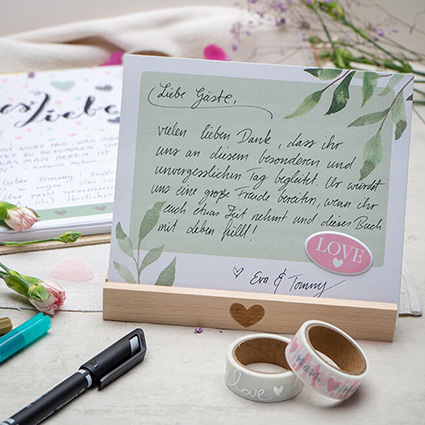 Liebe Gäste,
vielen lieben Dank, dass ihr
uns an diesem besonderen und
unvergesslichen Tag begleitet. Ihr würdet
uns eine große Freude bereiten, wenn ihr
euch etwas Zeit nehmt und dieses Buch
mit Leben füllt!
LOVE
Eva & Tommy
Liebe
love